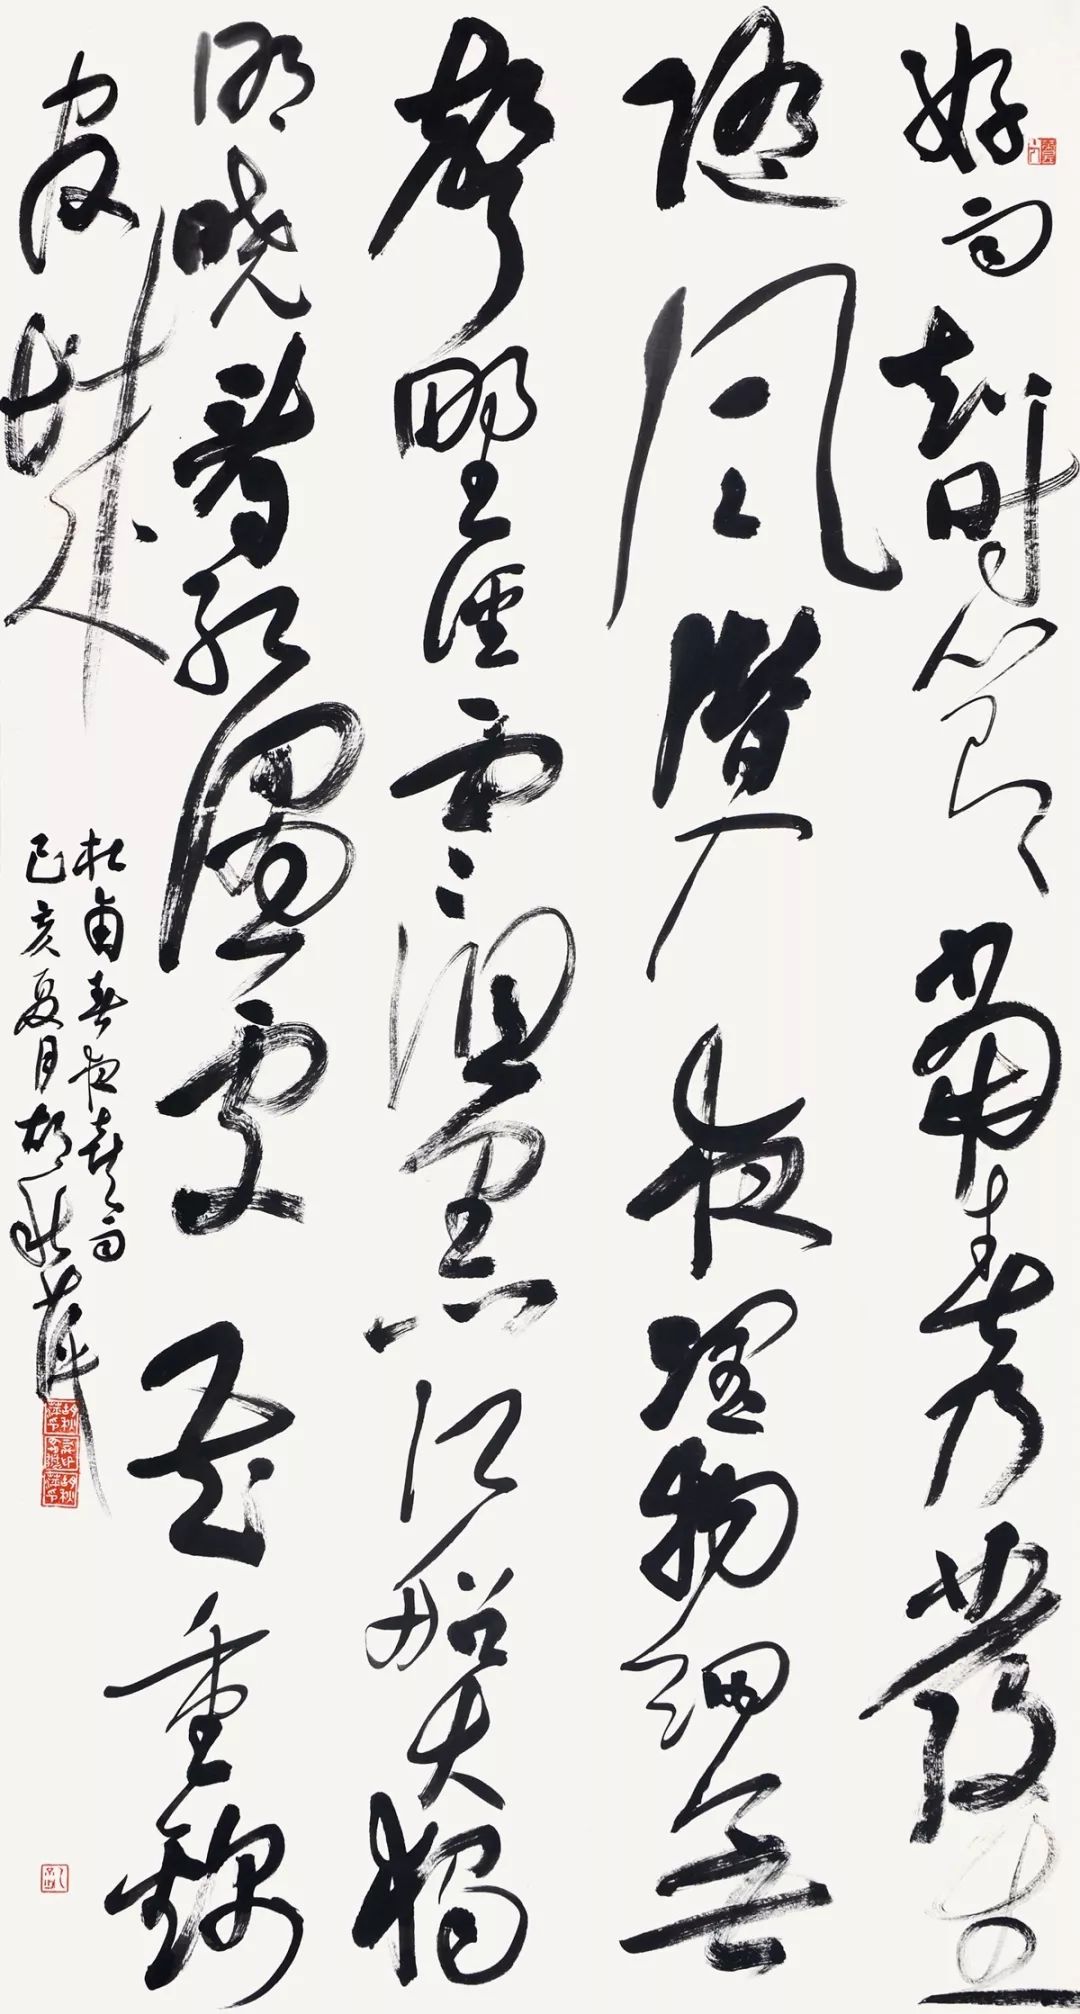 好雨知時節當春乃發生
隨風潛入夜潤物細無
聲野徑雲俱黑江船火獨
明曉看紅濕處花重錦
官城
杜甫春夜喜雨
己亥夏月胡秋萍